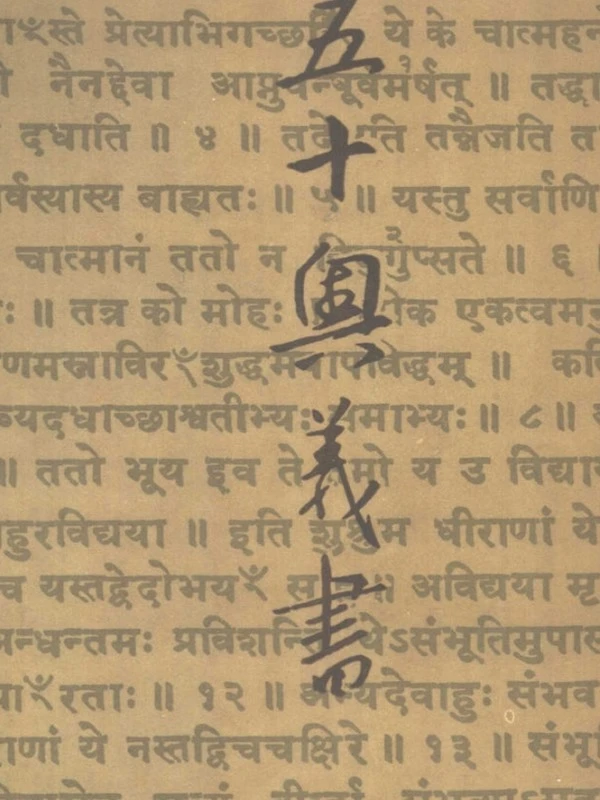 五十奧義書
प्रेत्याभिगच्छन्ति ये के चात्महन
नैनद्देवा आप्नुवन्पूर्वमर्षत् ॥ तद्धा
दधाति ॥ ४ ॥ तदेजति तन्नैजति त
र्वस्यास्य बाह्यतः ॥ ५ ॥ यस्तु सर्वाणि
चात्मानं ततो न विजुगुप्सते ॥ ६
ः ॥ तत्र को मोहः कः शोक एकत्वमनु
णमस्नाविरँ शुद्धमपापविद्धम् ॥ कवि
थ्यदधाच्छाश्वतीभ्यः समाभ्यः ॥ ८ ॥
॥ ततो भूय इव ते तमो य उ विद्याय
हुरविद्यया ॥ इति शुश्रुम धीराणां ये
च यस्तद्वेदोभयँ सह ॥ अविद्यया मृ
अन्धन्तमः प्रविशन्ति येऽसंभूतिमुपास
याँ रताः ॥ १२ ॥ अन्यदेवाहुः संभवा
राणां ये नस्तद्विचचक्षिरे ॥ १३ ॥ संभू